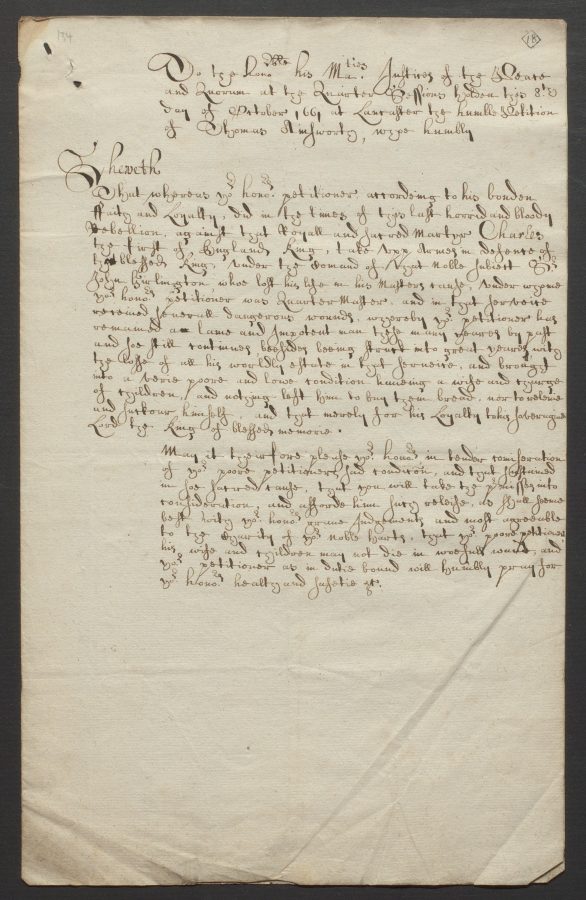 134
18
To the hono.ble his Ma.ties Justices of the Peace
and Quorum at the Quarter Sessions holden this 8th
day of October 1661 at Lancaster the humble Petition
of Thomas Ainsworth, most humbly
Sheweth
That whereas yo.r hono.rs petitioner accordeing to his bonden
ffaith and Loyalty, did in the times of this last horrid and bloody
Rebellion, against that Royall and sacred Martyr Charles
the first of Englands King, take upp Armes in defence of
that blessed King, under the Comand of that noble S.r
John Girlington, whoe lost his life in his Masters cause, under whome
yo.r hono.rs petitioner was Quarter Master, and in that service
received severall dangerous wounds, whereby yo.r petitioner has
remained a lame and Impotent man these many yeares by past
and soe still continues besides being struck into great yeares with
the losse of all his worldly estate in that service, and brought
into a verie poore and lowe condition haveing a wife and charge
of Children, and nothing left him to buy them bread, nor to releeve
and succour himself, and that merely for his Loyalty to his soveraigne
Lord the King of blessed memorie.
May it therefore please yo.r hono.rs in tender consideration
of yo.r poore petitioners sad condicon, and that sustained
in soe sacred cause, that you will take the p.misses into
consideration, and afforde him such releife, as shall seeme
best with yo.r hono.rs grave Judgements, and most agreeable
to the Charity of yo.r noble harts, that yo.r poore petitioner
his wife and children may not die in wofull want, and
yo.r petitioner as in dutie bound will humbly pray for
yo.r hono.rs health and safetie &c.